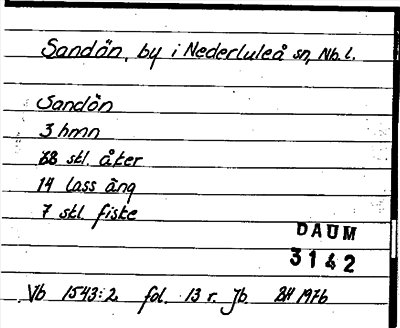 Sandön, by i Nederluleå sn, Nb. l.
Sandön
3 hmn
28 skl. åker
14 lass äng
7 skl fiske
DAUM
3142
Vb 1543:2 fol. 13 r. Jb. BH 1976